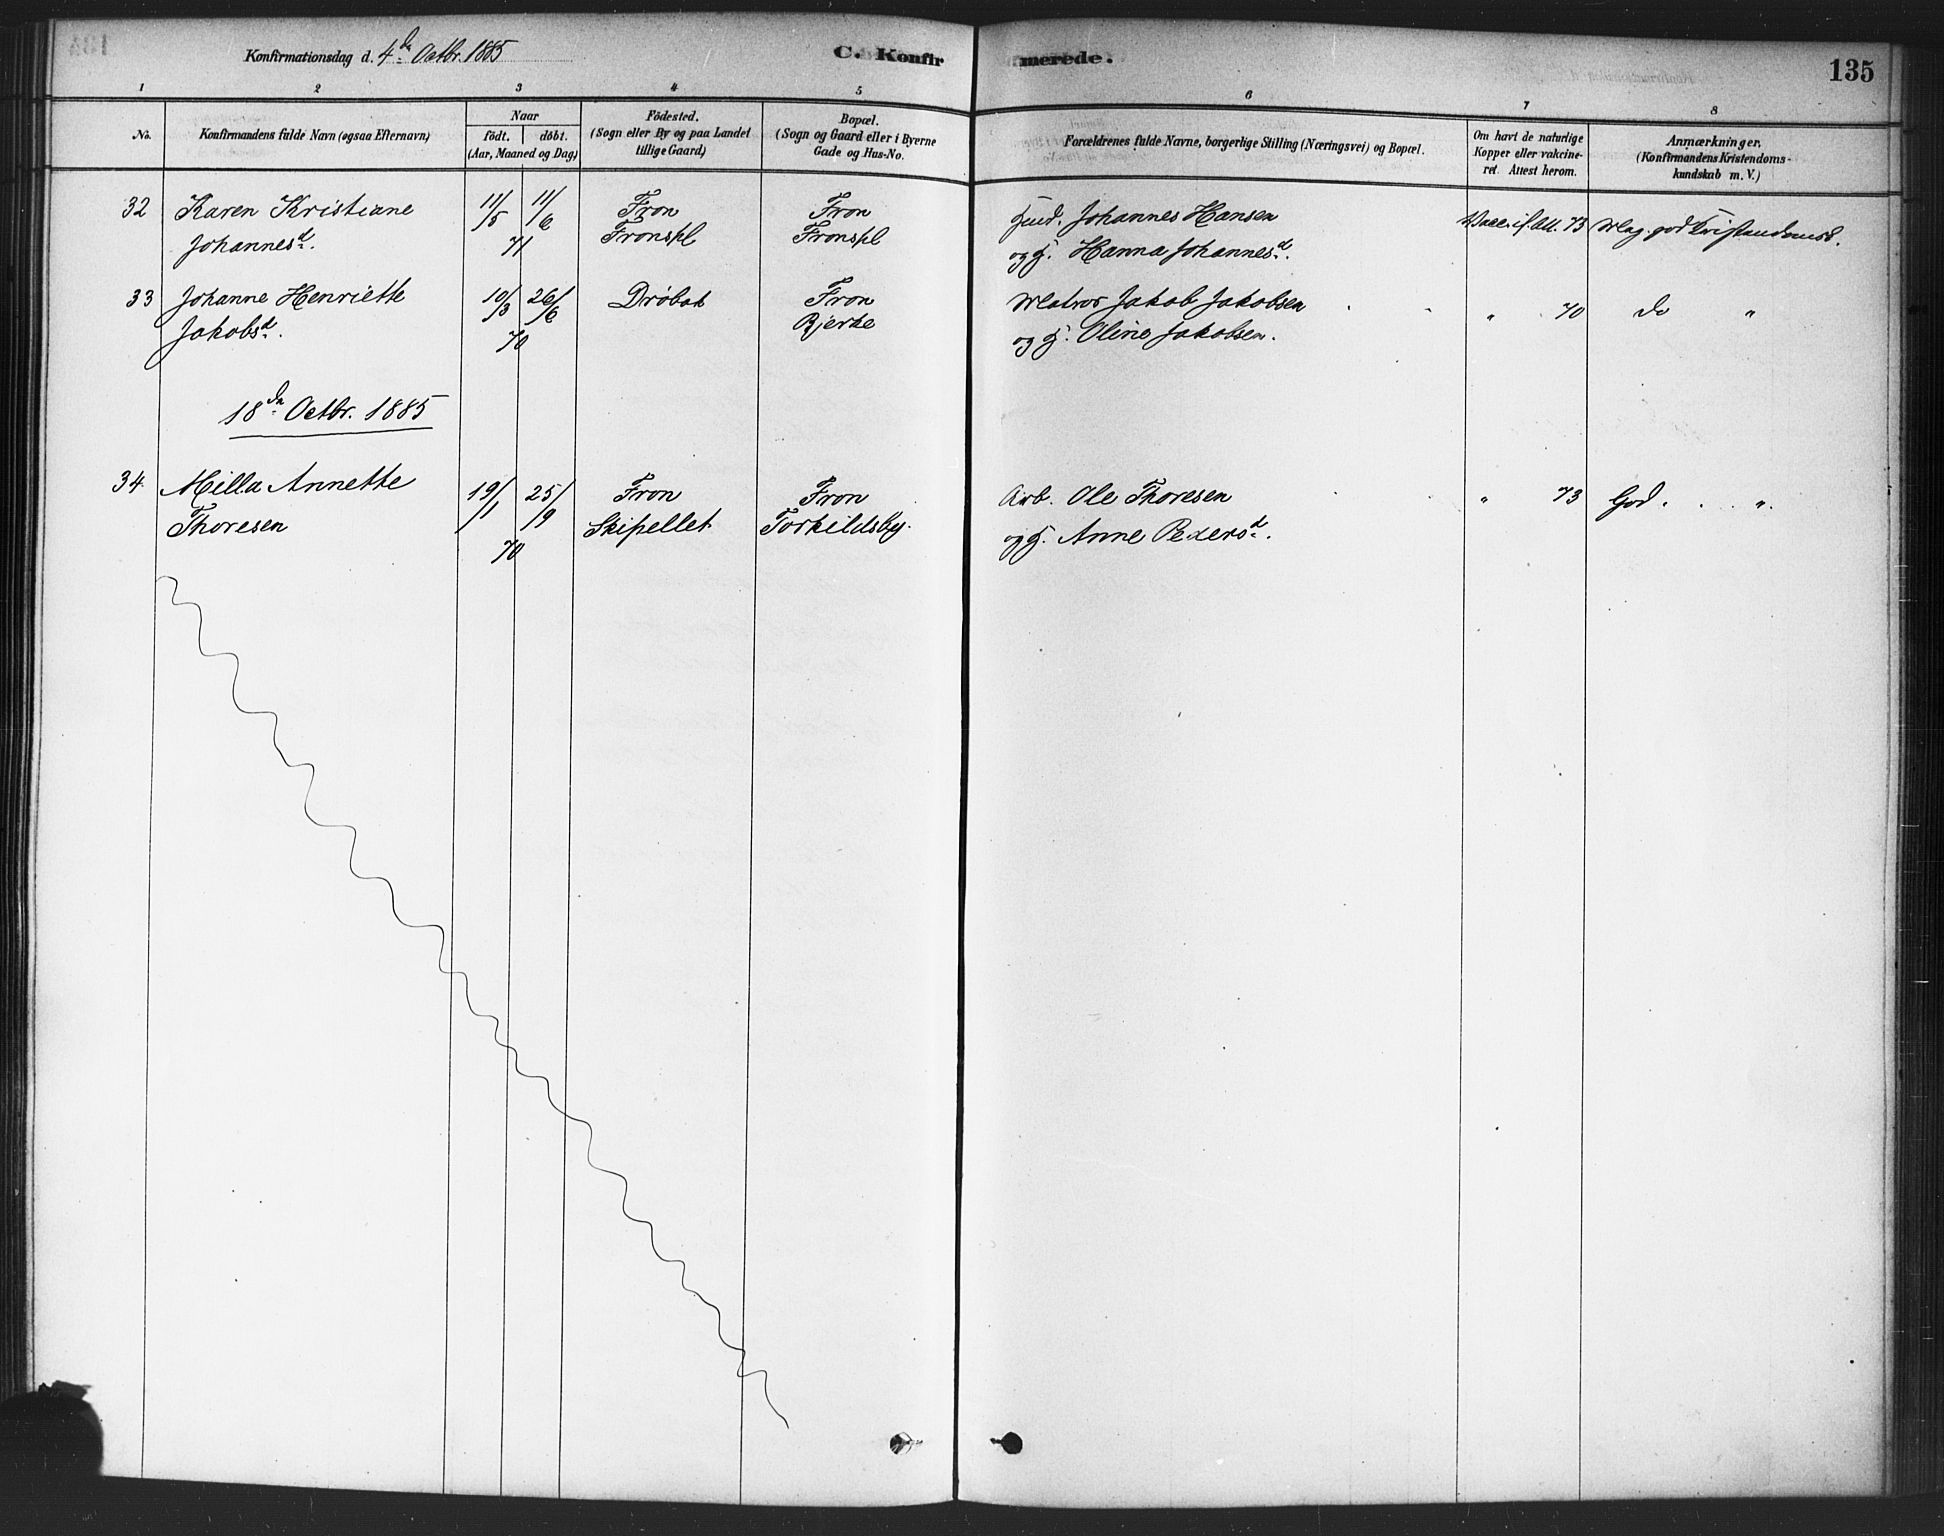 Konfirmationsdag d. 4de Octbr. 1885
C. Konfirmerede.
135
1 2 3 4 5 6 7 8
No.
Konfirmandens fulde Navn (ogsaa Efternavn)
Naar
födt. döbt.
(Aar, Maaned og Dag)
Födested.
(Sogn eller By og paa Landet
tillige Gaard)
Bopæl.
(Sogn og Gaard eller i Byerne
Gade og Hus-No.
Forældrenes fulde Navne, borgerlige Stilling (Næringsvei) og Bopæl.
Om havt de naturlige
Kopper eller vakcine-
ret. Attest herom.
Anmærkninger.
(Konfirmandens Kristendoms-
kundskab m. V.)
32 Karen Kristiane 11/5 11/6 Fron Fron Johannes Hansen Vacc. if. att. 73 Mag. god Kristendomsk.
Johannesd. 71 Fronspl Fronspl og H. Hanna Johannesd.
33 Johanne Henriette 10/3 26/6 Dröbak Fron Matros Jakob Jakobsen " 70 do "
Jakobsd. 70 Bjerke og H. Oline Jakobsen.
18de Octbr. 1885
34 Milla Annette 19/1 25/9 Fron Fron Arb. Ole Thoresen " 73 God . . . ".
Thoresen 70 Skipellet Torkildsby. og H. Anne Pedersd.